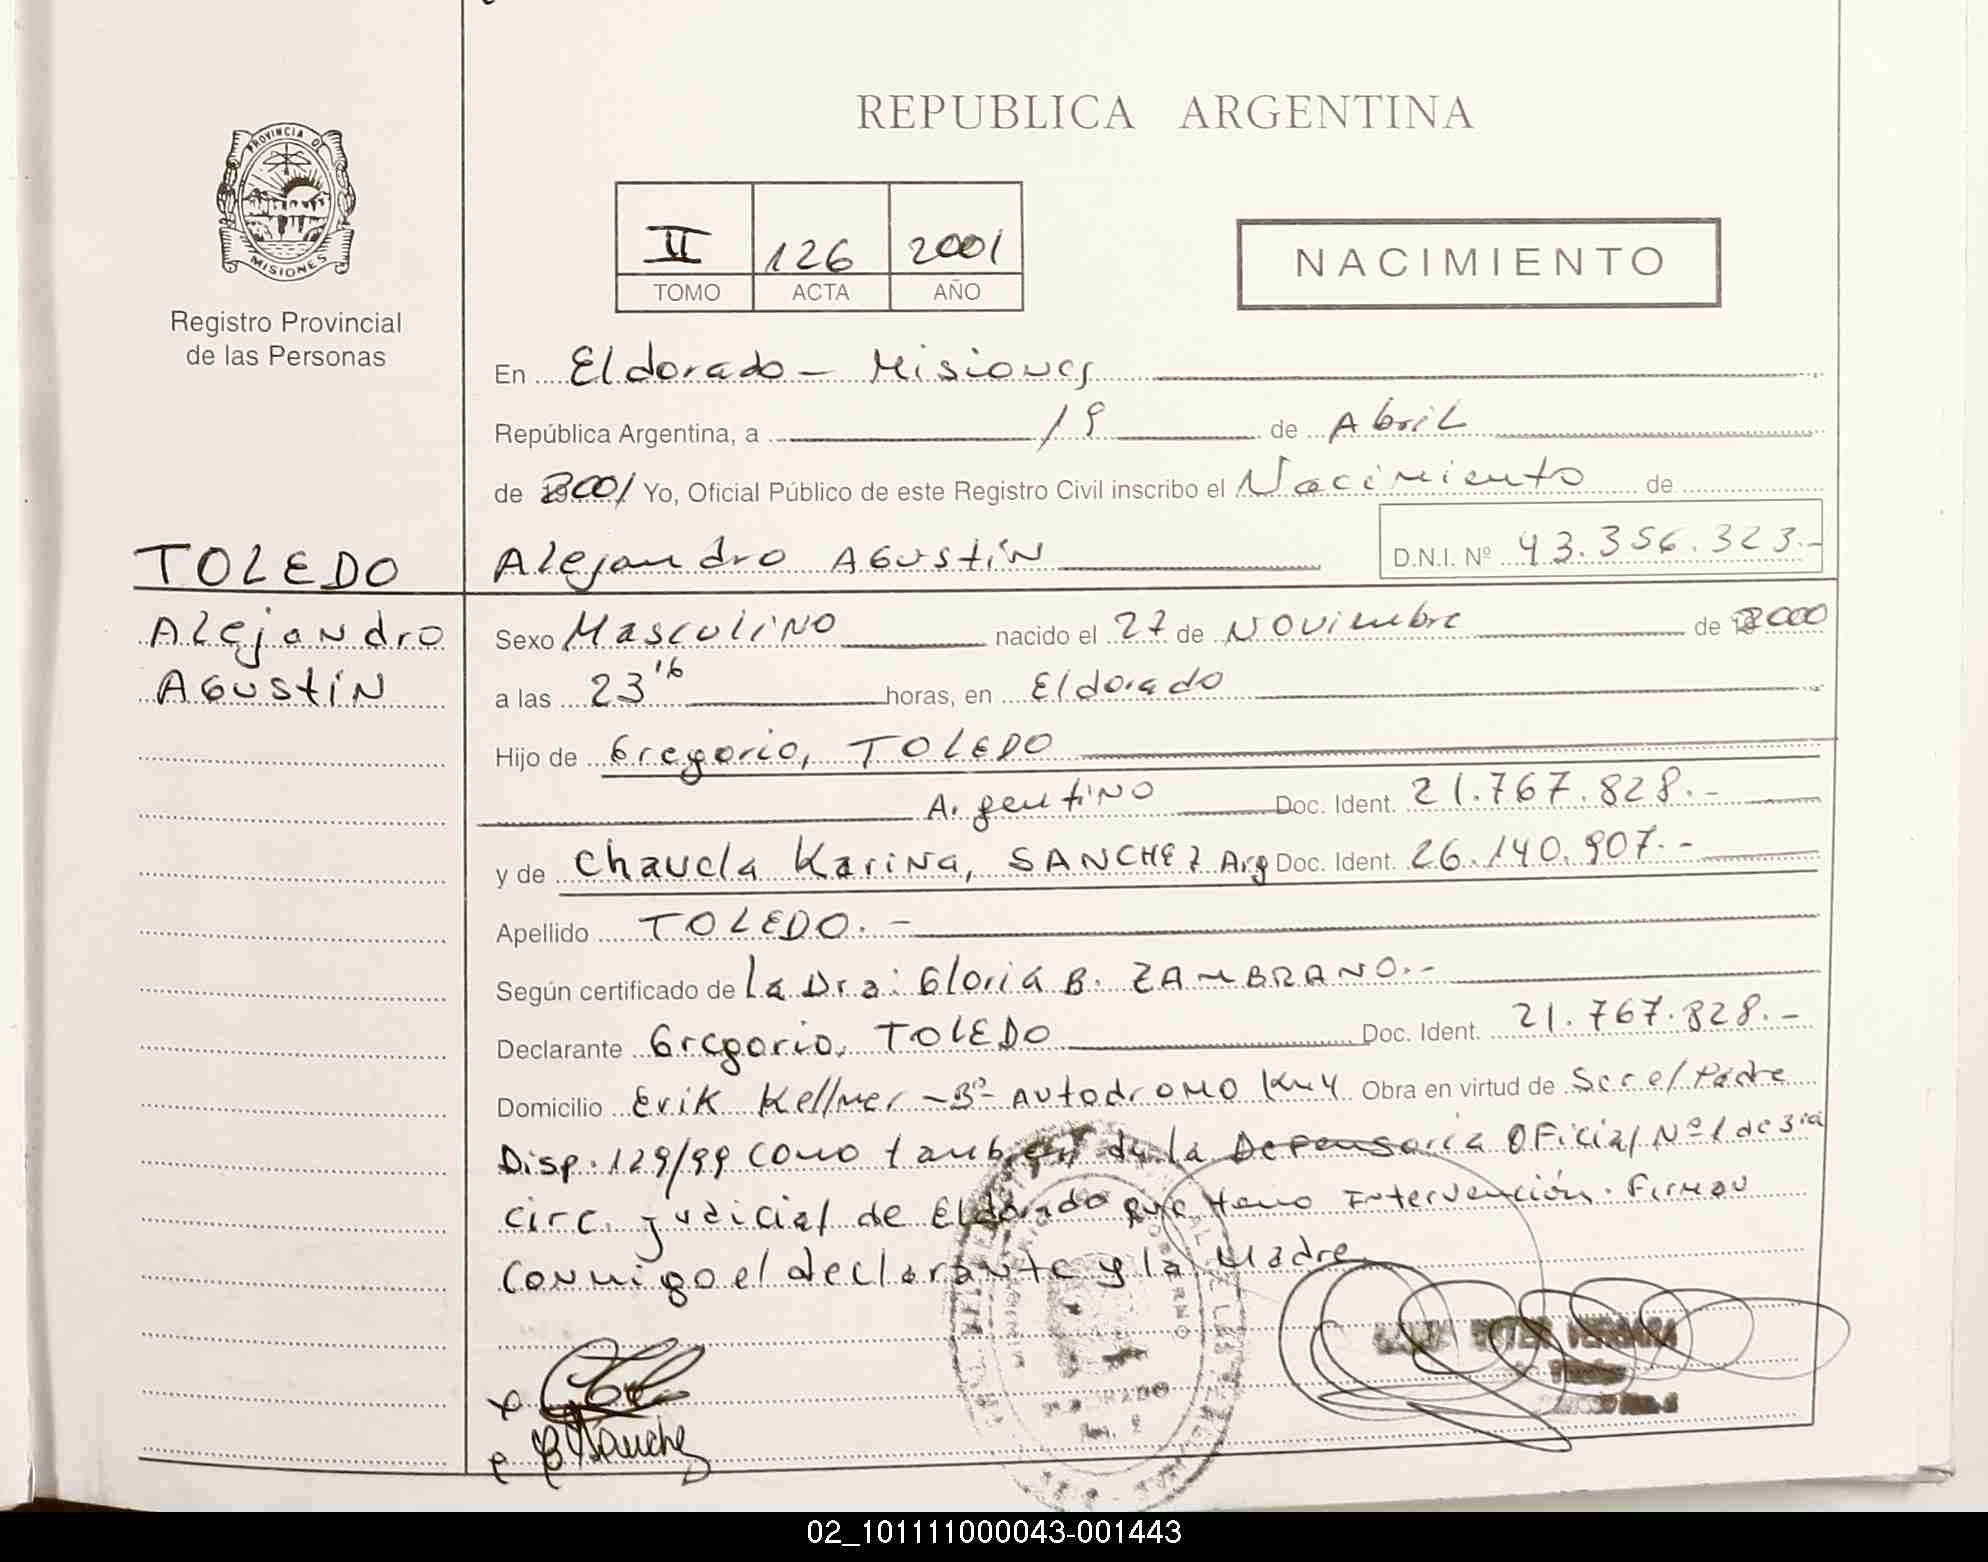 REPUBLICA ARGENTINA
PROVINCIA DE
MISIONES
Registro Provincial
de las Personas
II 126 2001
TOMO ACTA AÑO
NACIMIENTO
En Eldorado - Misiones
República Argentina, a 19 de Abril
de 2001 Yo, Oficial Público de este Registro Civil inscribo el Nacimiento de
TOLEDO
Alejandro Agustín
Alejandro Agustín D.N.I. Nº 43.356.323.-
Sexo Masculino nacido el 27 de Noviembre de 2000
a las 23 16 horas, en Eldorado
Hijo de Gregorio, TOLEDO
Argentino Doc. Ident. 21.767.828.-
y de Chavela Karina, SANCHEZ Arg Doc. Ident. 26.140.907.-
Apellido TOLEDO.-
Según certificado de la Dra: Gloria B. ZAMBRANO.-
Declarante Gregorio, TOLEDO Doc. Ident. 21.767.828.-
Domicilio Erik Kellmer - Bº Autodromo Km 4 Obra en virtud de Ser el Padre
Disp. 129/99 como tambien de la Defensoria Oficial Nº 1 de 3ra
circ. judicial de Eldorado que tomo Intervención. Firman
conmigo el declarante y la Madre
Sanchez
02_101111000043-001443